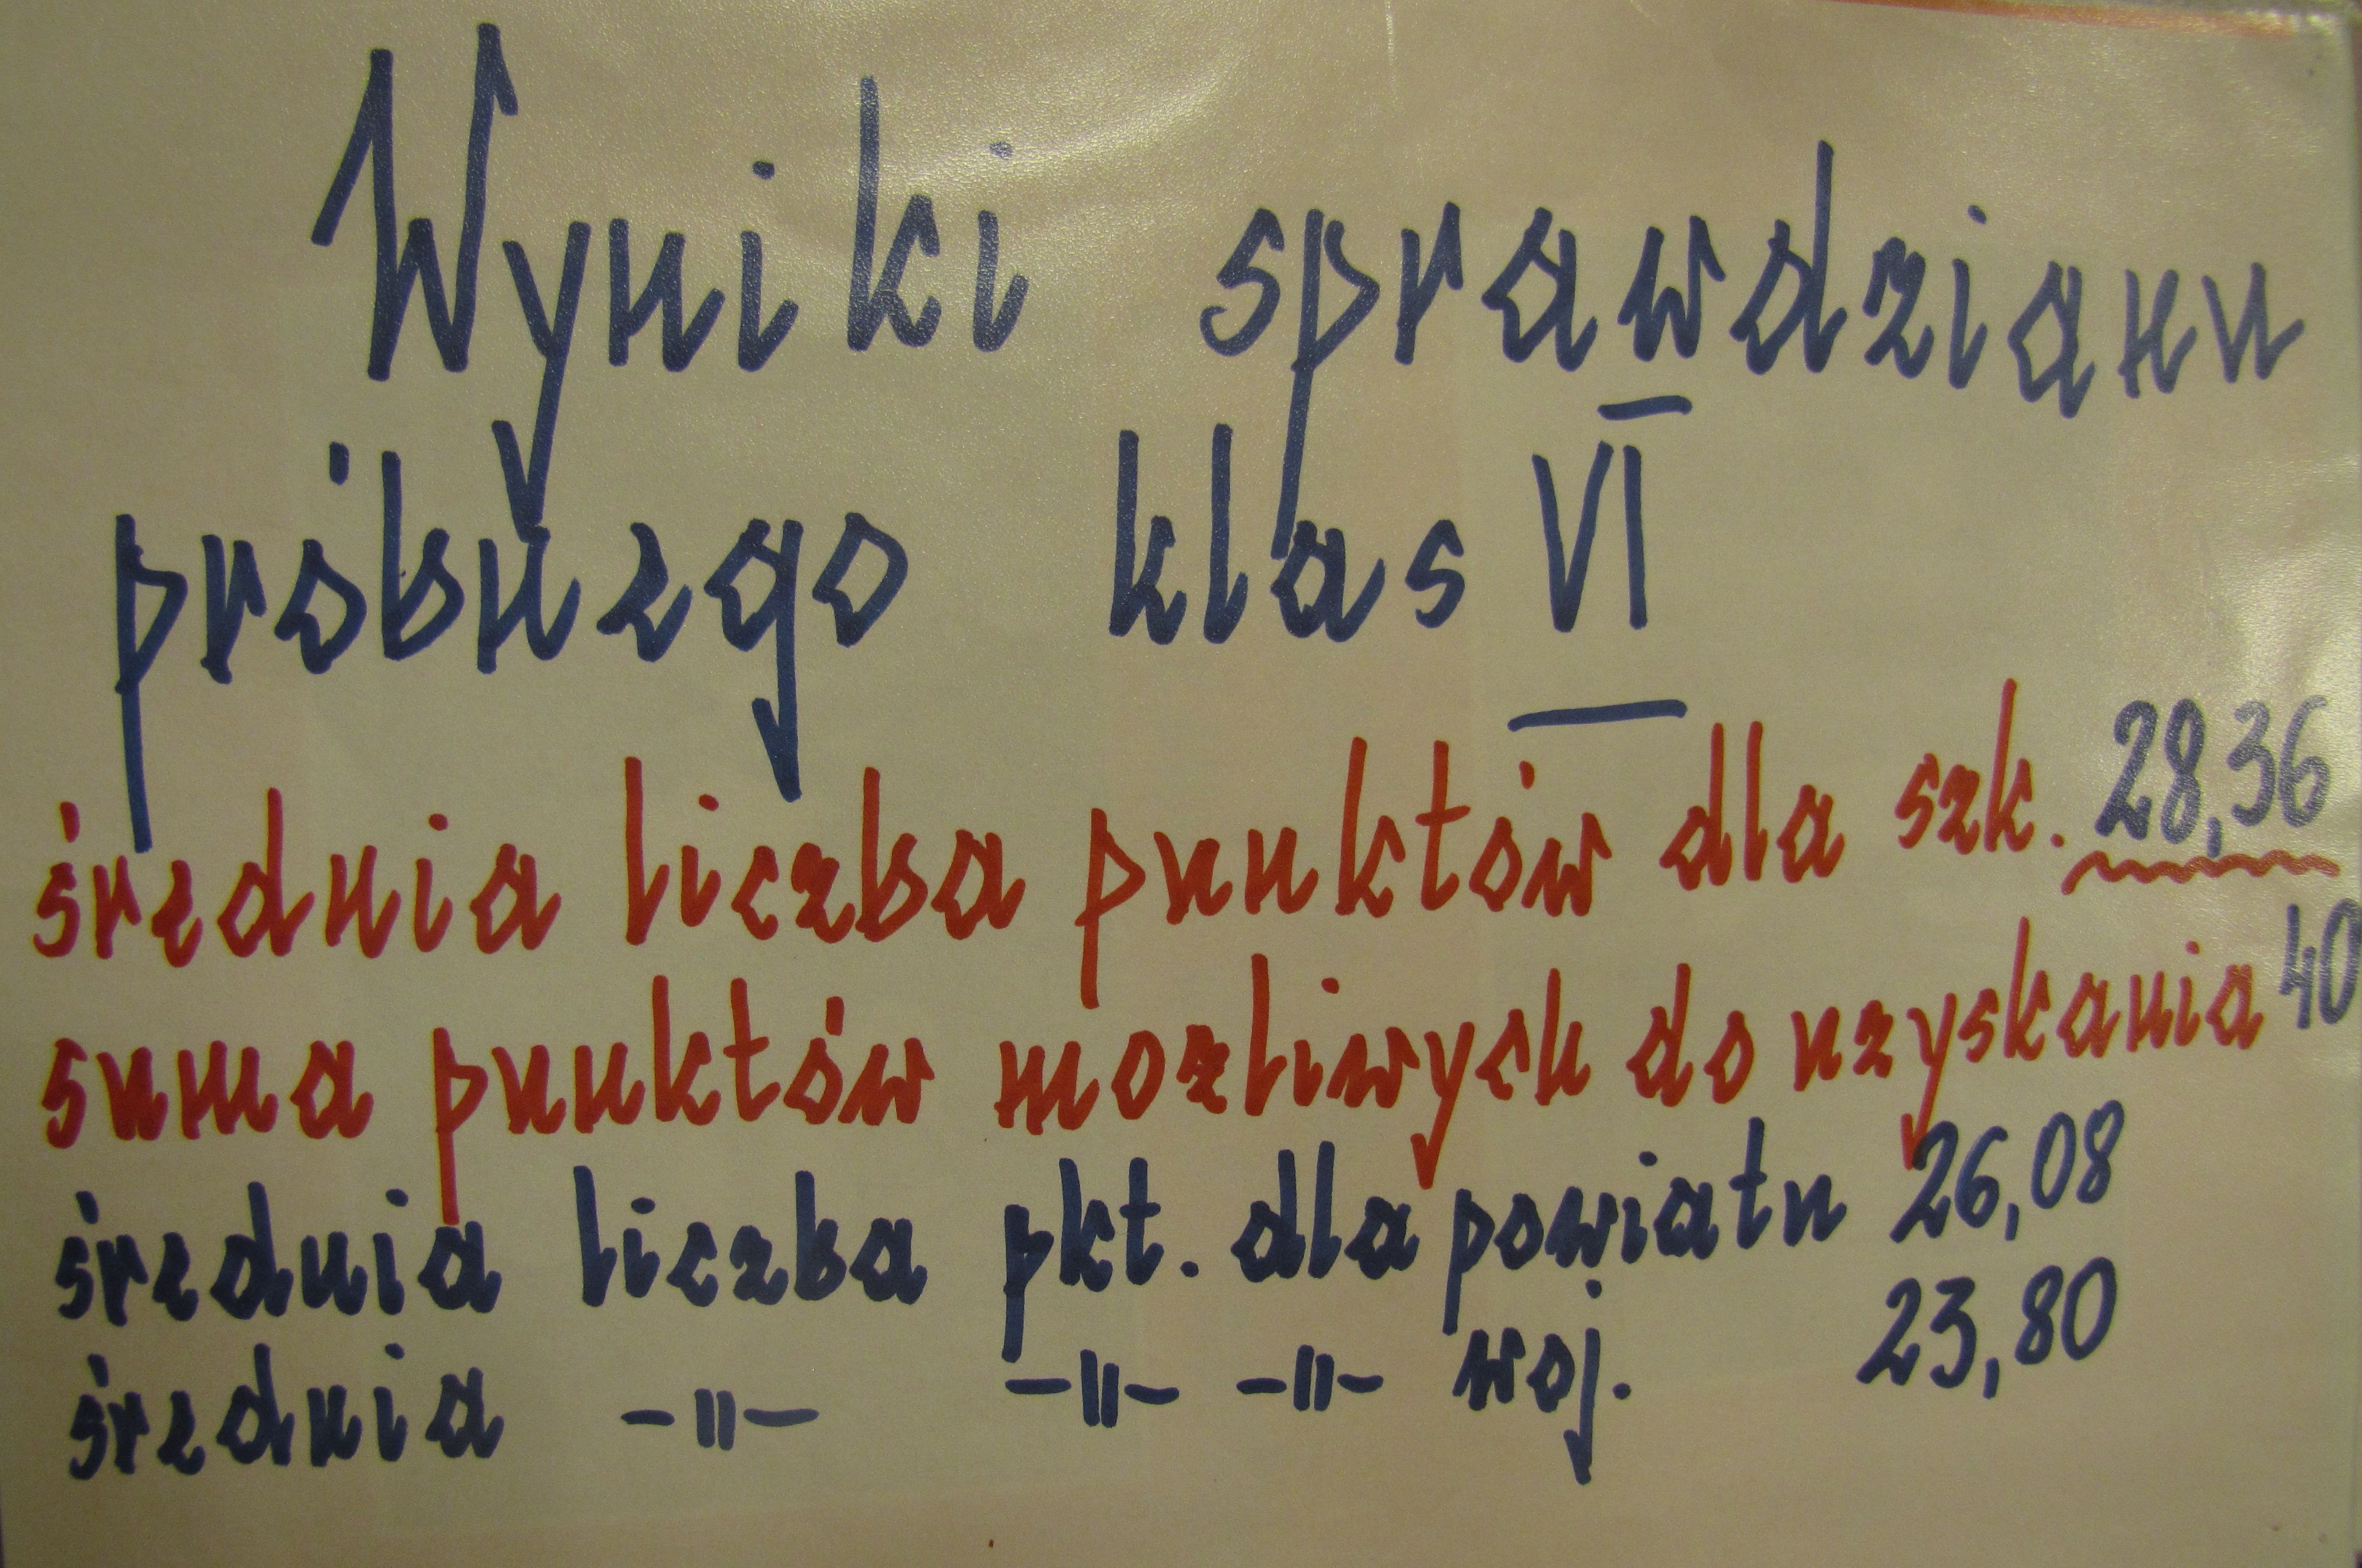 Wyniki sprawdzianu
próbnego klas VI
średnia liczba punktów dla szk. 28,36
suma punktów mozliwych do uzyskania 40
średnia liczba pkt. dla powiatu 26,08
średnia -||- -||- -||- woj. 23,80